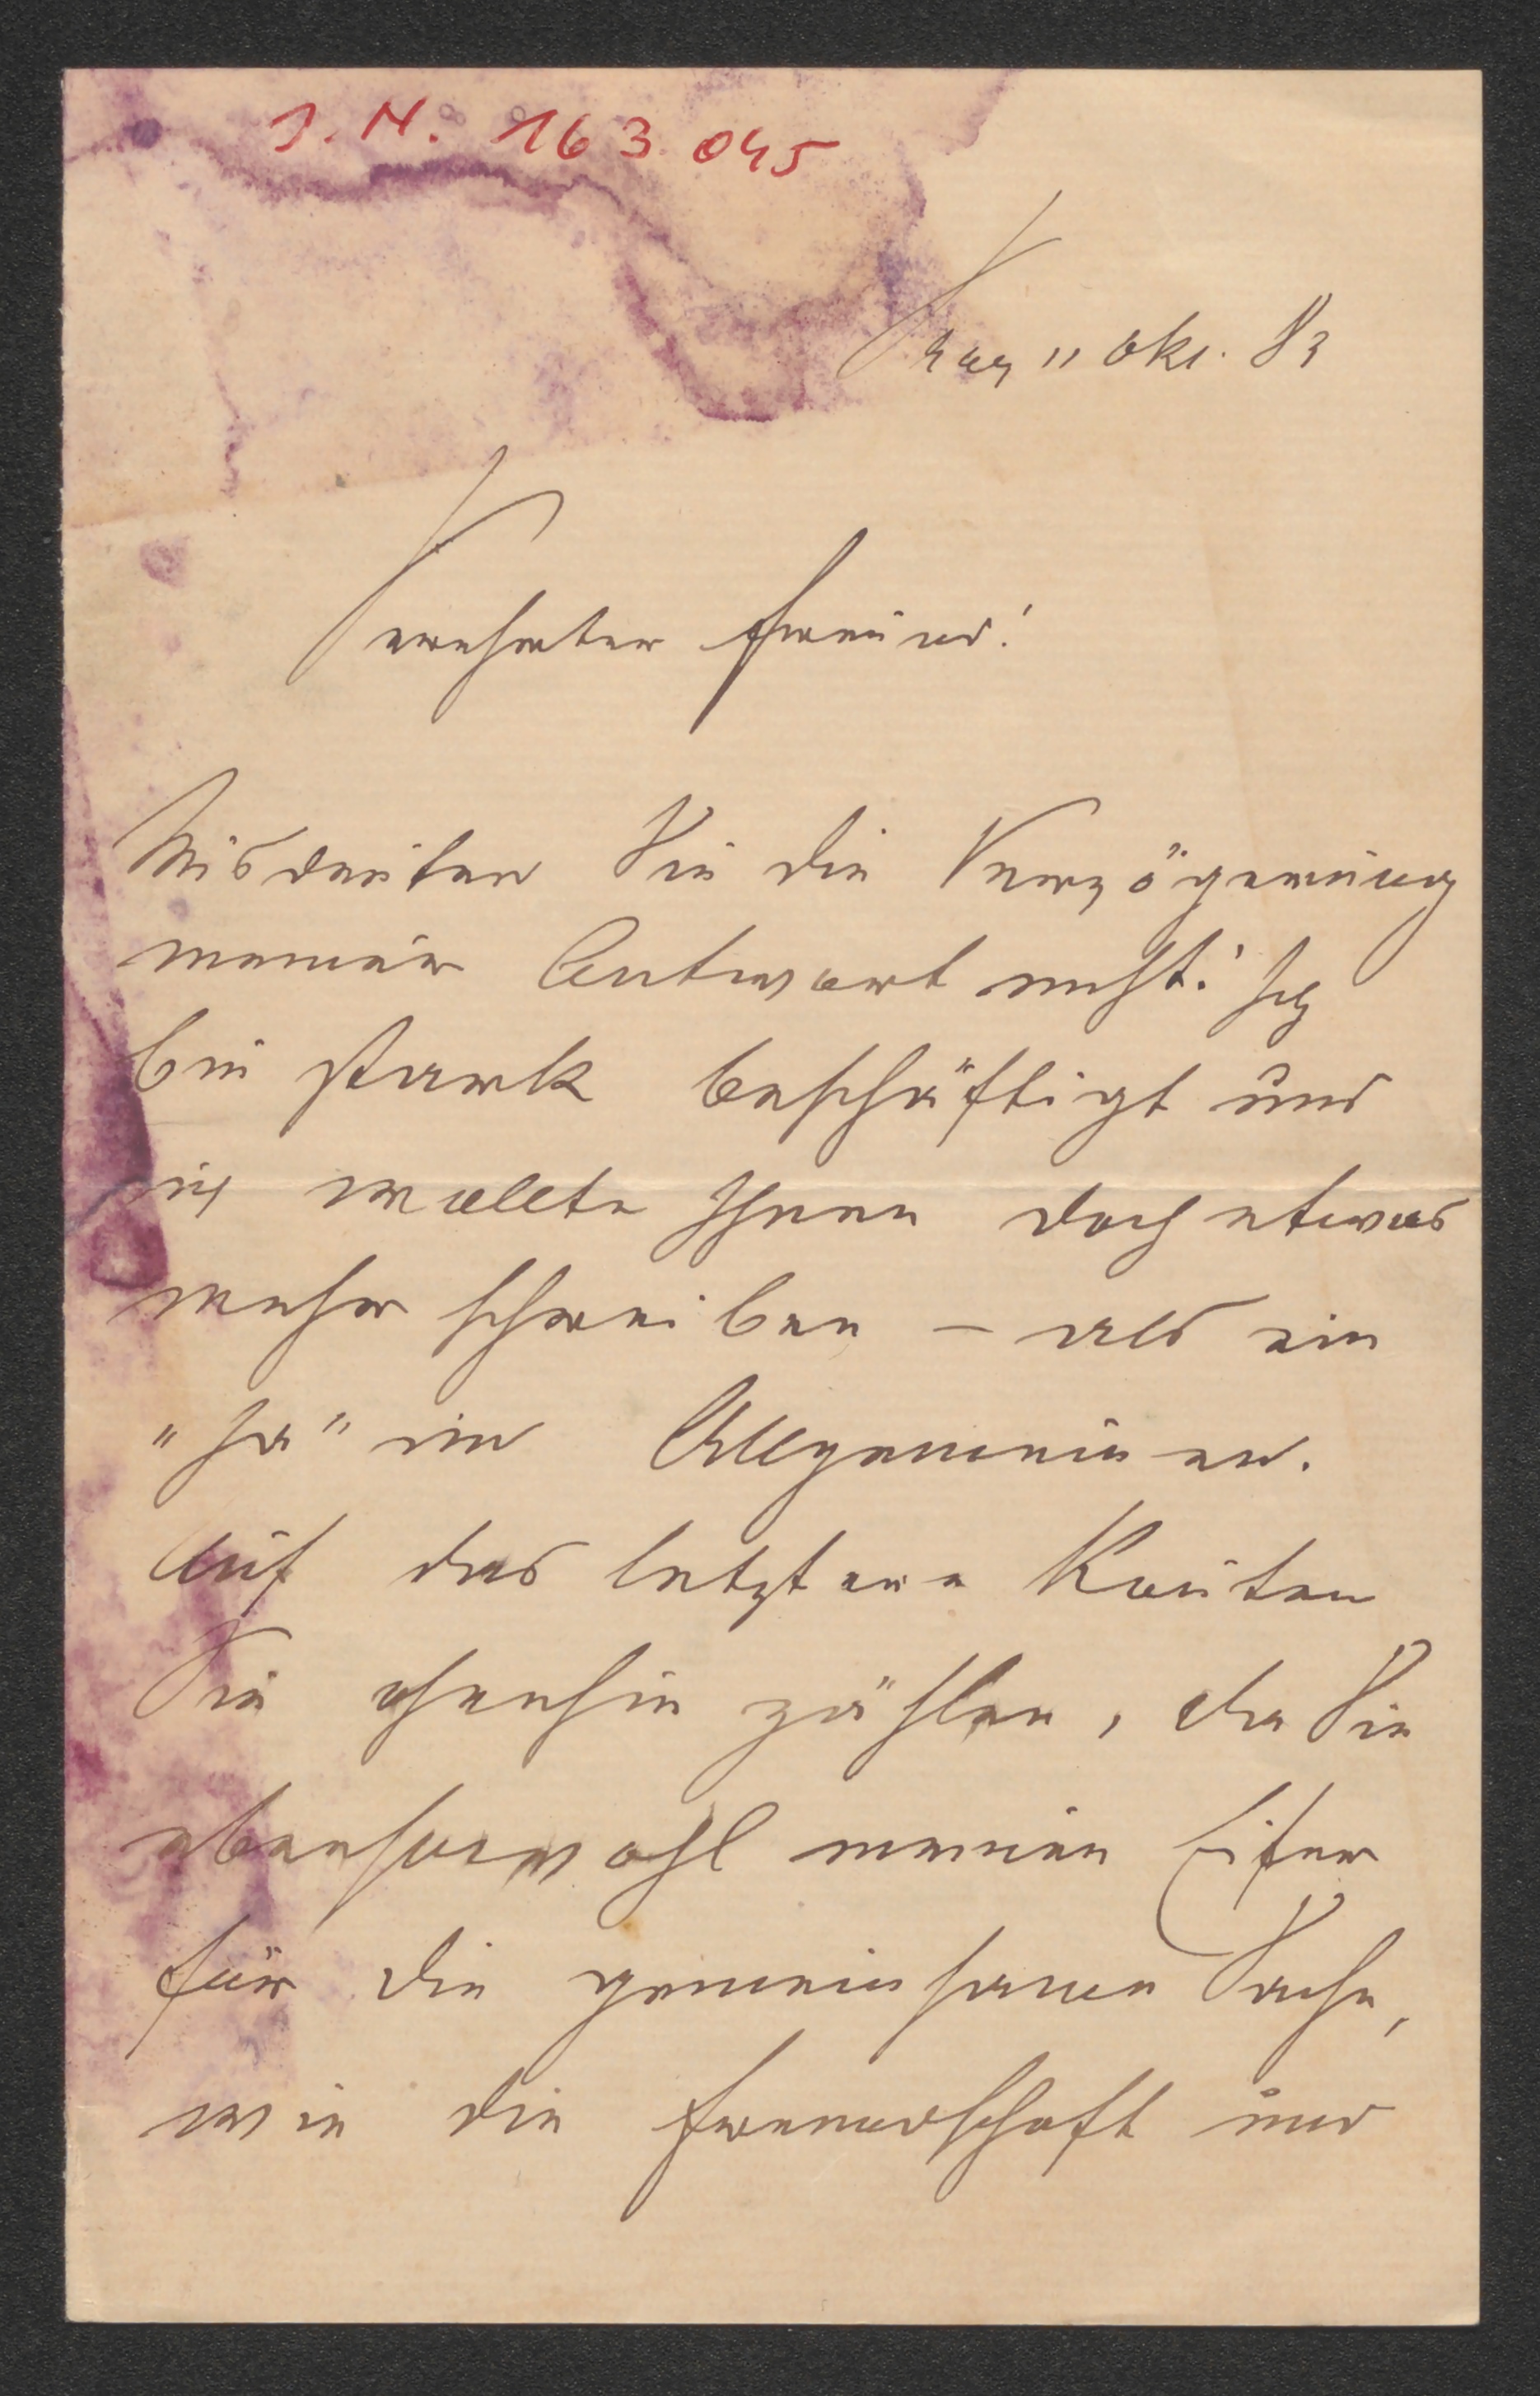 I. N. 163.045
Prag 11 Okt. 83
Verehrter Freund!
Misdeuten Sie die Verzögerung
meiner Antwort nicht: Ich
bin stark beschäftigt und
ich wollte Ihnen doch etwas
mehr schreiben – als ein
"Ja" im Allgemeinen.
Auf das letztere konten
Sie ohnehin zählen, da Sie
ebensowohl meinen Eifer
für die gemeinsame Sache,
wie die Freundschaft und